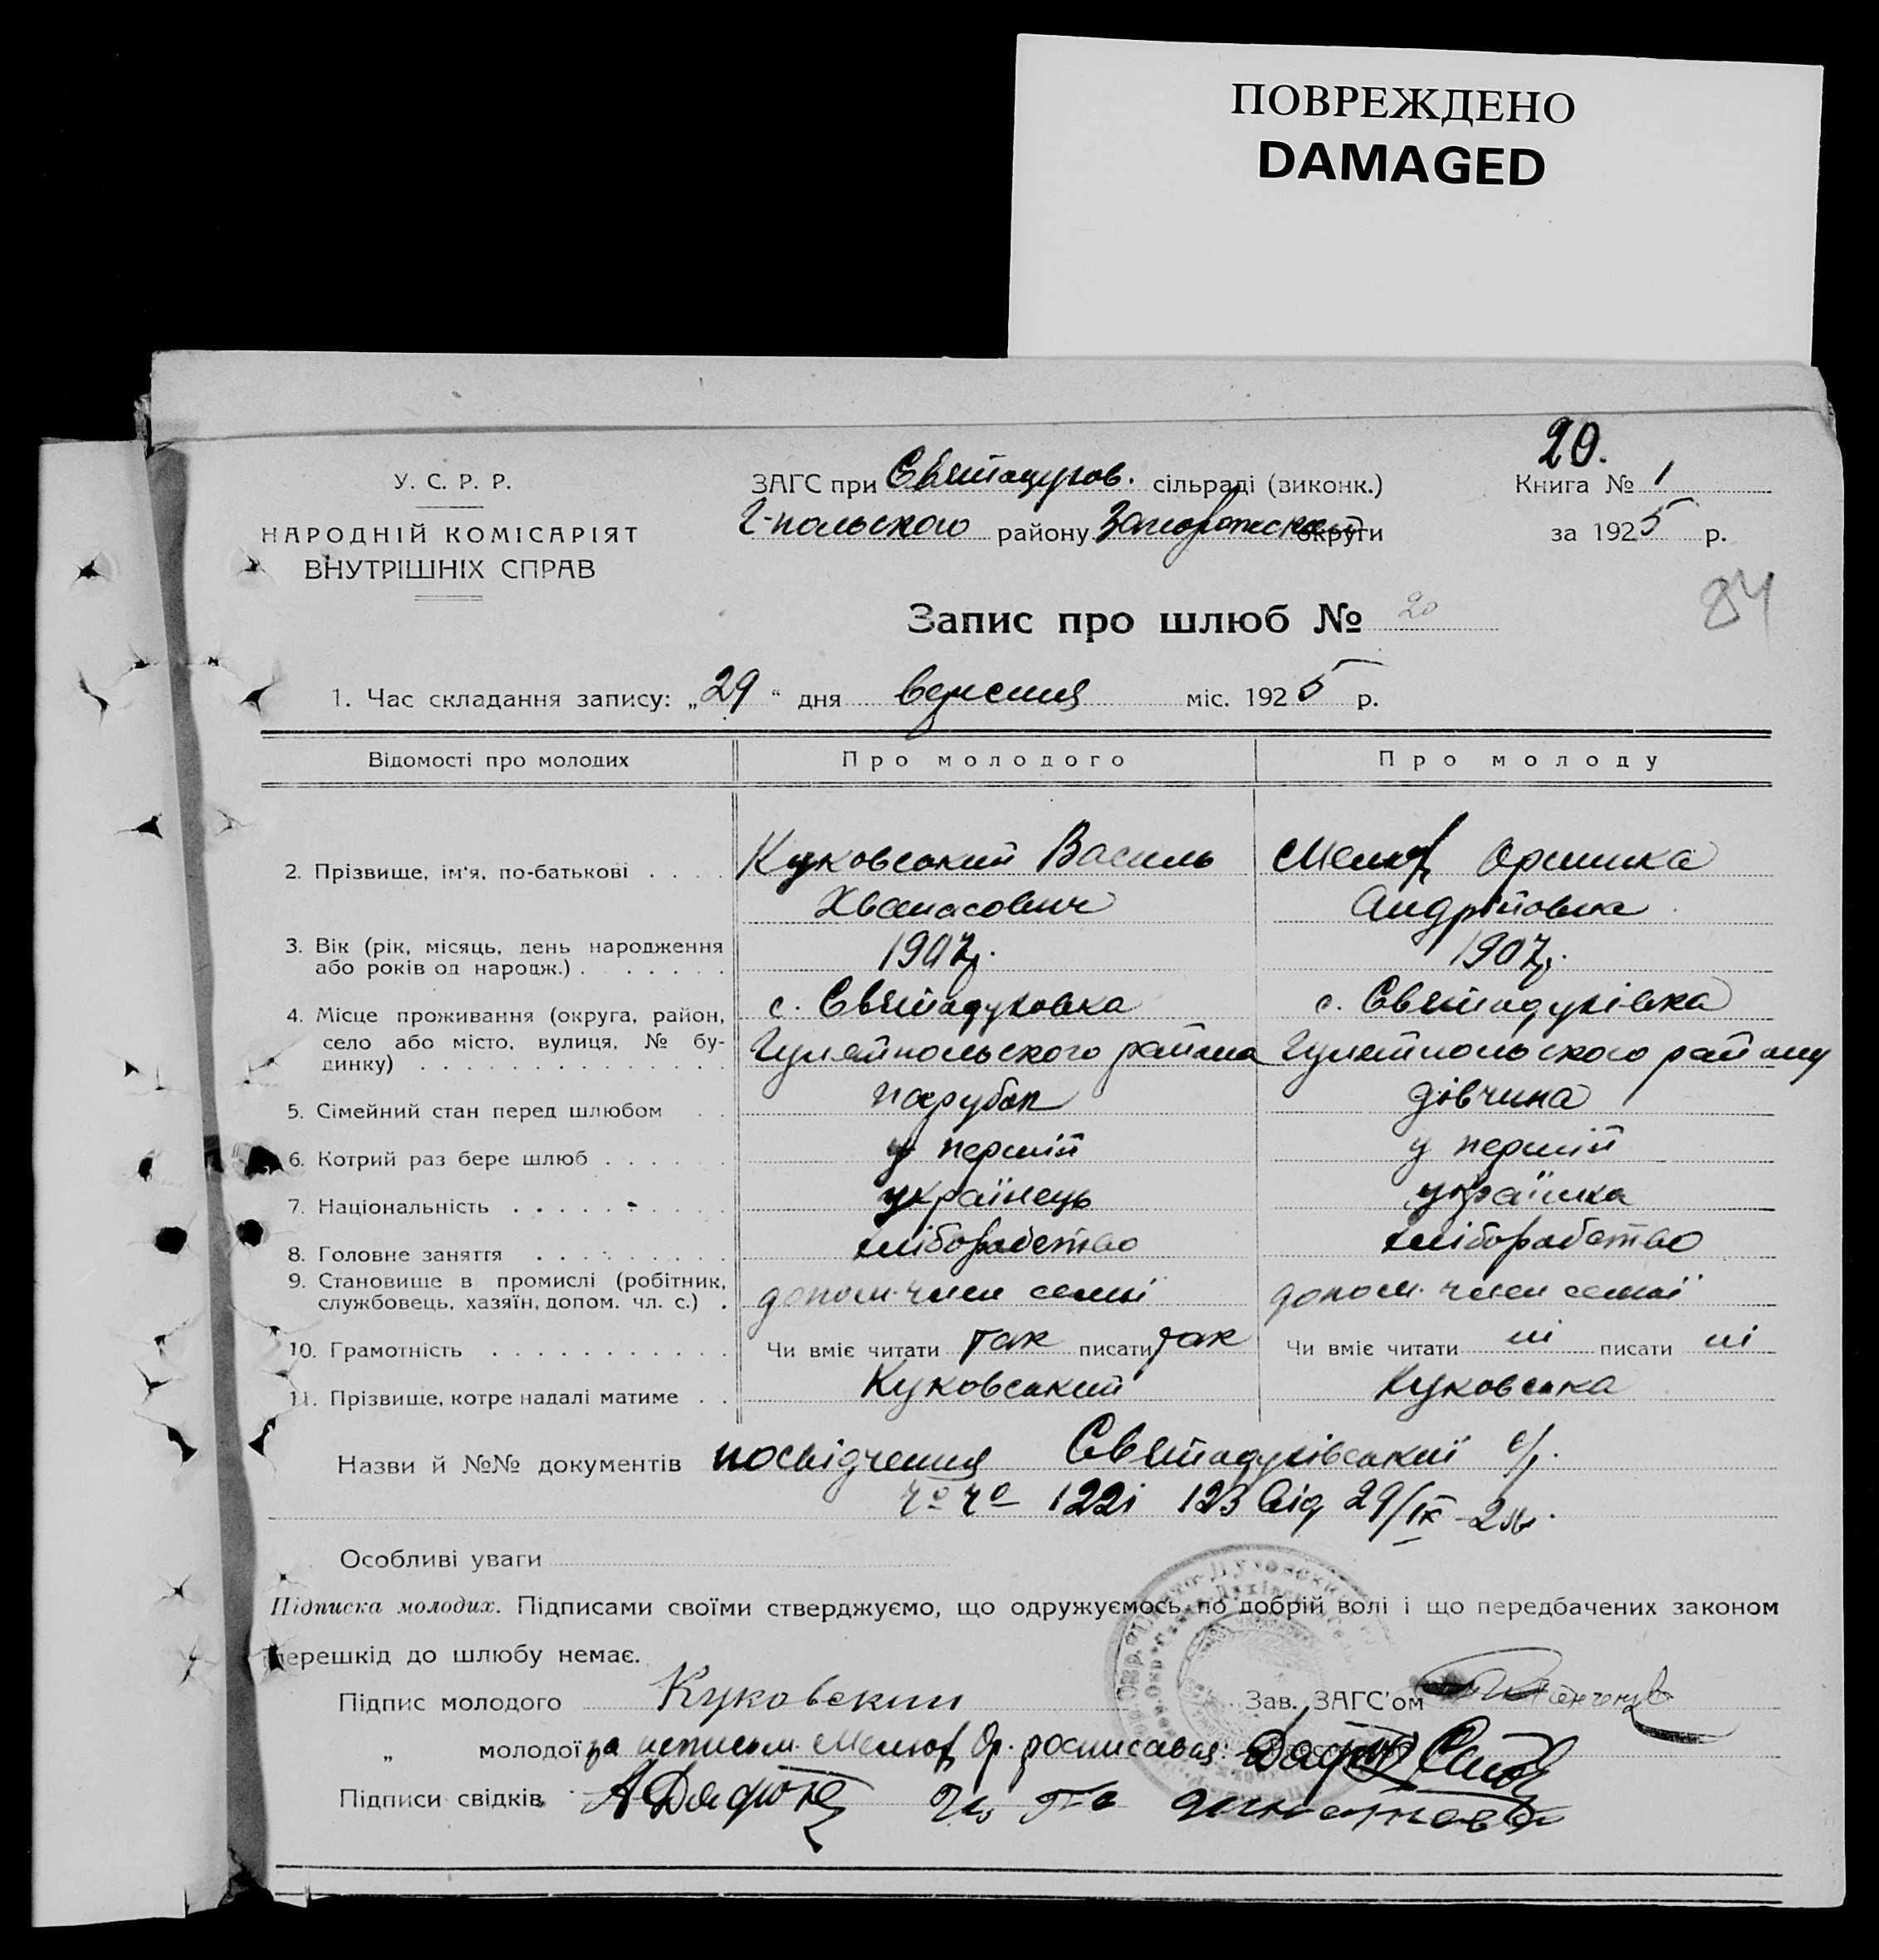 ПОВРЕЖДЕНО
DAMAGED
20.
У. С. Р. Р.
НАРОДНІЙ КОМІСАРІЯТ
ВНУТРІШНІХ СПРАВ
ЗАГС при Святодухов. сільраді (виконк.)
Г-польского району Запоріжськ округи
Книга № 1
за 1925 р.
84
Запис про шлюб № 20
1. Час складання запису: „29“ дня вересня міс. 1925 р.
Відомості про молодих Про молодого Про молоду
2. Прізвище, ім'я, по-батькові . . . . Куковський Василь Оришка
Хванасович Андріївна
3. Вік (рік, місяць, день народження 1907р. 1907р.
або років од народж.) . . . . . . .
4. Місце проживання (округа, район, с. Святадуховка с. Святадухівка
село або місто, вулиця, № бу- Гуляйпольського района Гуляйпольского району
динку) . . . . . . . . . . . . . . .
5. Сімейний стан перед шлюбом . . парубок дівчина
6. Котрий раз бере шлюб . . . . . . у перший у перший
7. Національність . . . . . . . . . . українець українка
8. Головне заняття . . . . . . . . . хліборобство хліборобство
9. Становище в промислі (робітник, допом. член семї допом. член семї
службовець, хазяїн, допом. чл. с.) .
10. Грамотність . . . . . . . . . . . Чи вміє читати так писати так Чи вміє читати ні писати ні
11. Прізвище, котре надалі матиме . . Куковський Куковська
Назви й №№ документів посвідчення Святадухівської с/р.
122 і 123 від 29/IX-25р.
Особливі уваги
Підписка молодих. Підписами своїми стверджуємо, що одружуємось по добрій волі і що передбачених законом
перешкід до шлюбу немає.
Підпис молодого Куковский Зав. ЗАГС'ом
„ молодої за неписьм. Ор. росписався:
Підписи свідків